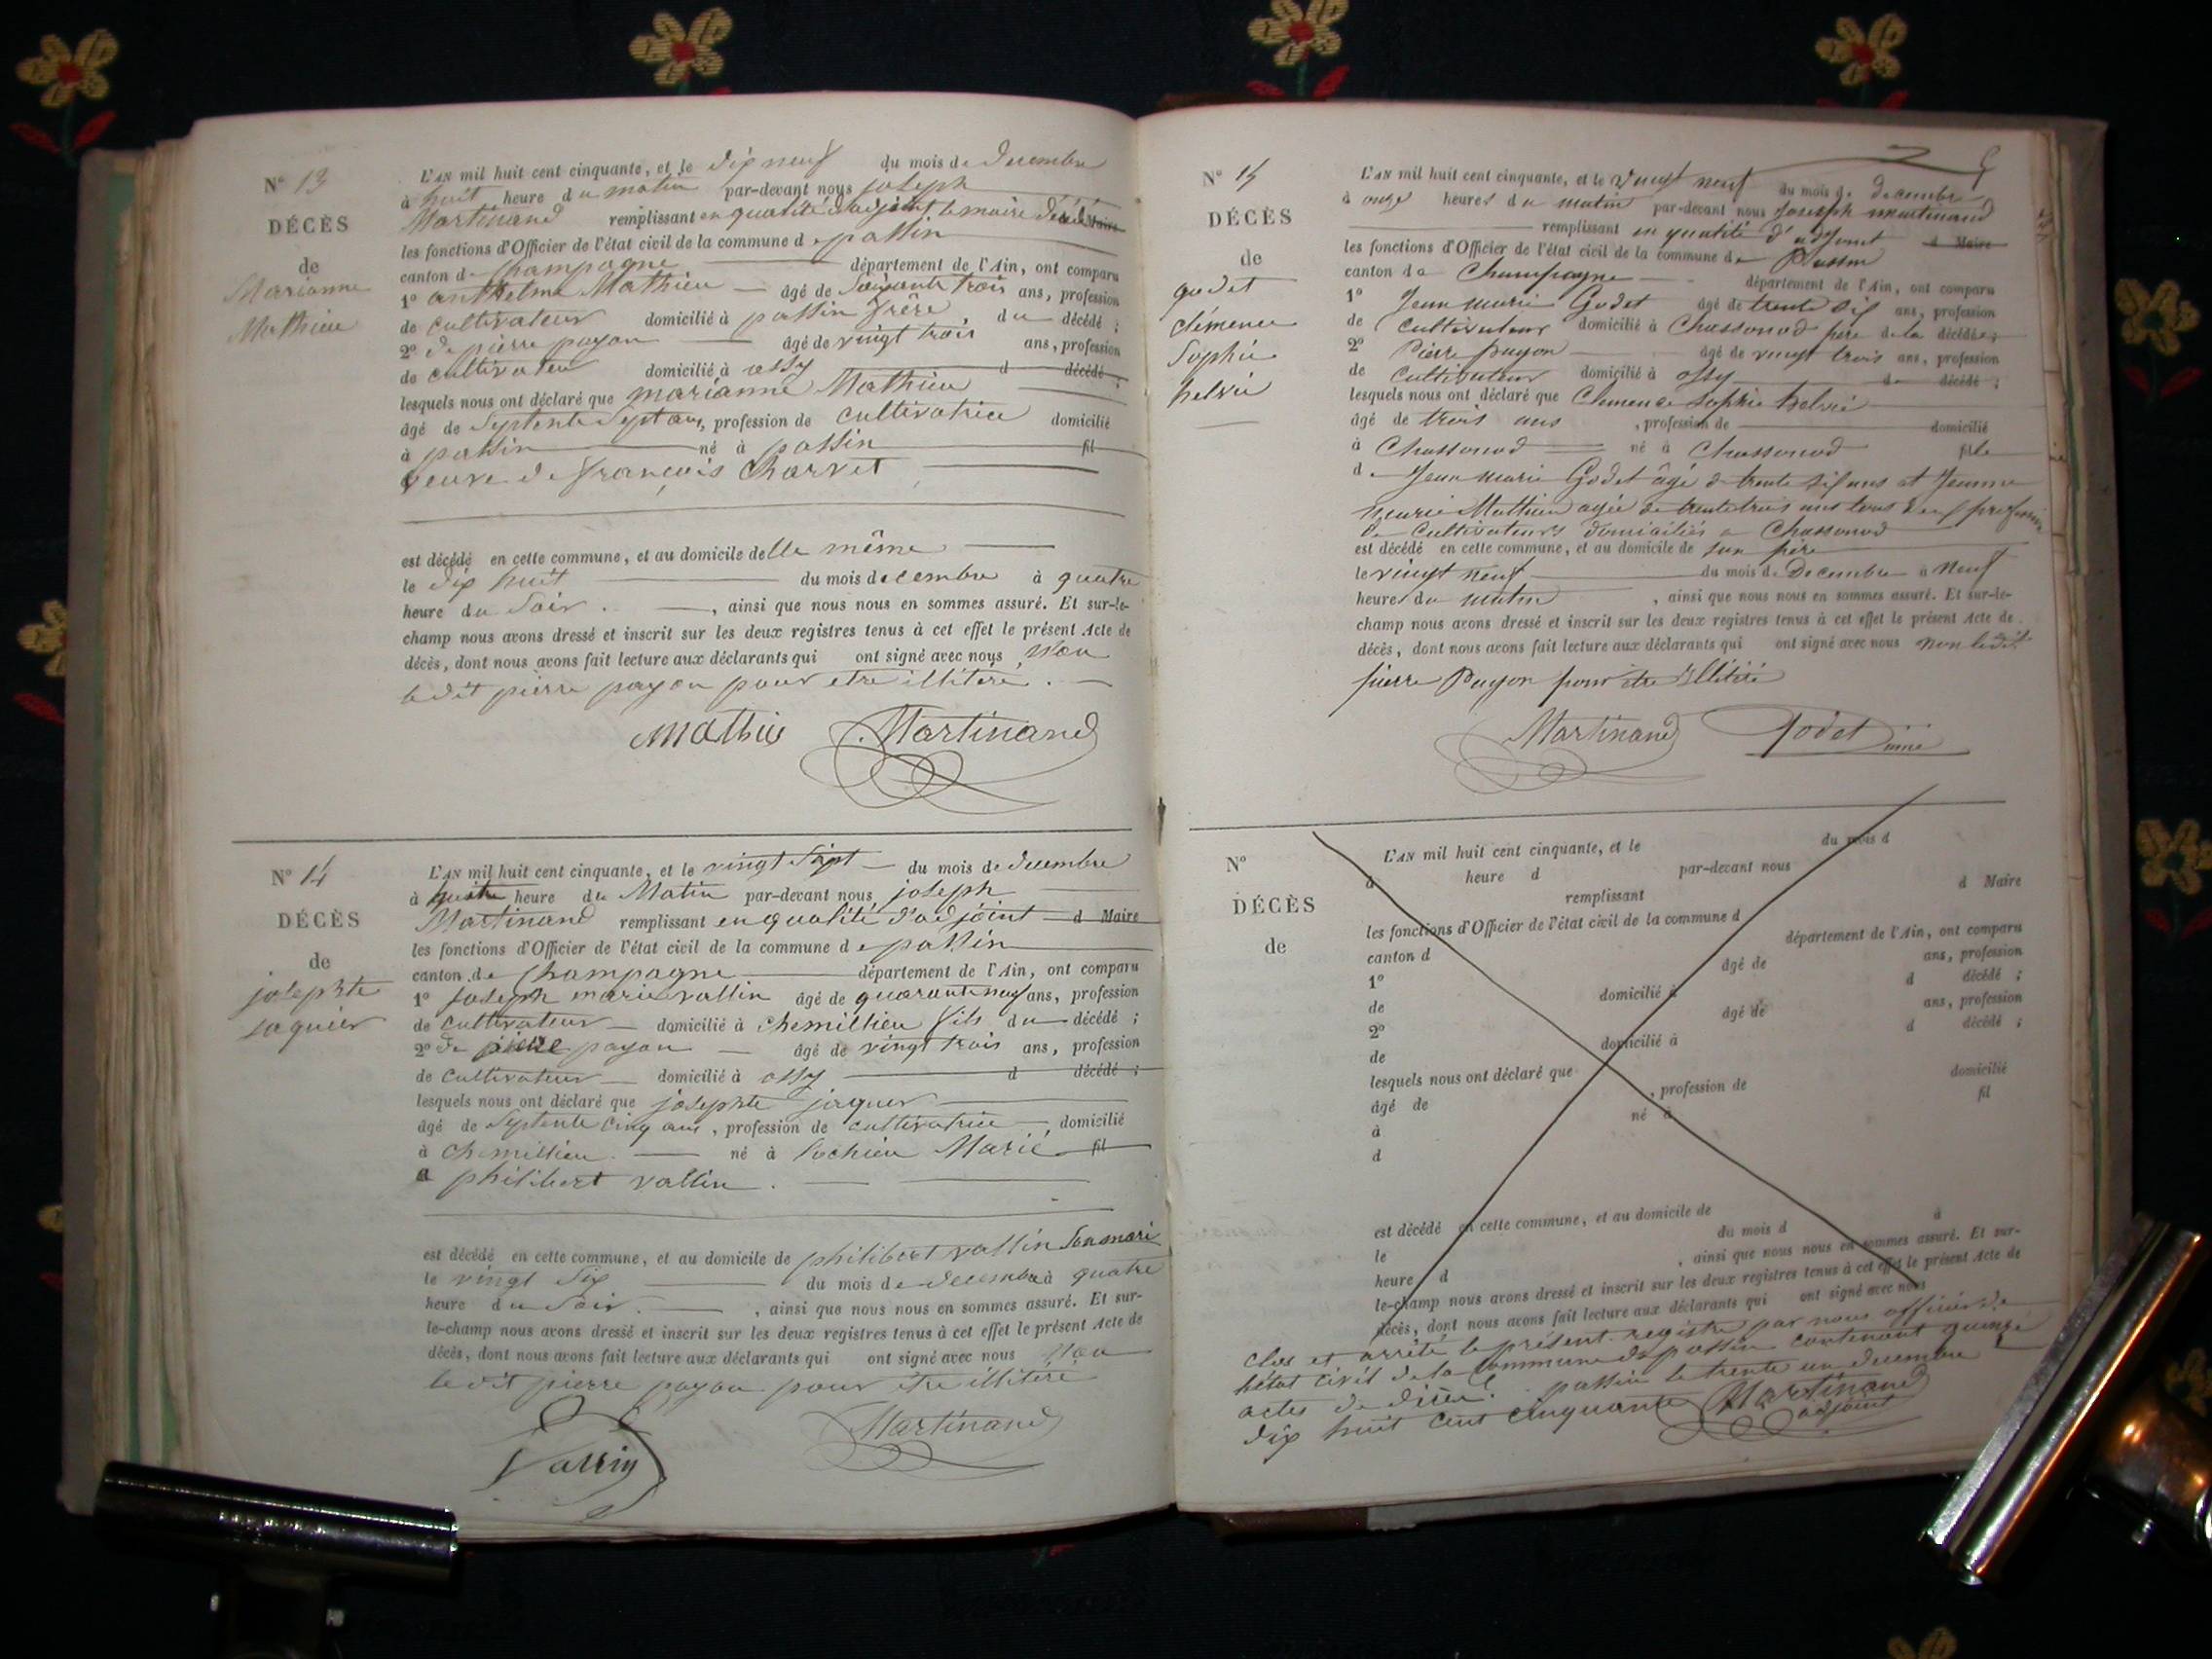 N° 13
DÉCÈS
de
Marianne
Mathieu
L'AN mil huit cent cinquante, et le dix neuf du mois de decembre
à huit heure du matin par-devant nous joseph
Martinand remplissant en qualité d'adjoint le maire décédé Maire
les fonctions d'Officier de l'état civil de la commune de passin
canton de Champagne département de l'Ain, ont comparu
1° anthelme Mathieu âgé de Soixante trois ans, profession
de cultivateur domicilié à passin frère du décédé ;
2° de pierre payon âgé de vingt trois ans, profession
de cultivateur domicilié à ossy d décédé ;
lesquels nous ont déclaré que marianne Mathieu
âgé de Septente Sept ans, profession de cultivatrice domicilié
à passin né à passin fil
veuve de françois Charvet
est décédé en cette commune, et au domicile delle même
le dix huit du mois decembre à quatre
heure du Soir. , ainsi que nous nous en sommes assuré. Et sur-le-
champ nous avons dressé et inscrit sur les deux registres tenus à cet effet le présent Acte de
décès, dont nous avons fait lecture aux déclarants qui ont signé avec nous Non
le dit pierre payon pour etre illitere.
Mathieu Martinand
N° 14
DÉCÈS
de
josephte
jaquier
L'AN mil huit cent cinquante, et le vingt Sept du mois de decembre
à heure du Matin par-devant nous joseph
Martinand remplissant en qualité d'adjoint d Maire
les fonctions d'Officier de l'état civil de la commune de passin
canton de Champagne département de l'Ain, ont comparu
1° joseph marie vallin âgé de quarante neuf ans, profession
de cultivateur domicilié à chemillieu fils du décédé ;
2° de pierre payon âgé de vingt trois ans, profession
de cultivateur domicilié à ossy d décédé ;
lesquels nous ont déclaré que josephte jaquier
âgé de Septente cinq ans, profession de cultivatrice domicilié
à chemillieu. né à lochieu Marié fil
a philibert vallin.
est décédé en cette commune, et au domicile de philibert vallin Son mari
le vingt Six du mois de decembre à quatre
heure du Soir. , ainsi que nous nous en sommes assuré. Et sur-
le-champ nous avons dressé et inscrit sur les deux registres tenus à cet effet le présent Acte de
décès, dont nous avons fait lecture aux déclarants qui ont signé avec nous Non
le dit pierre payon pour être illitéré
Vallin Martinand
N° 15
DÉCÈS
de
godet
clémence
Sophie
helvie
L'AN mil huit cent cinquante, et le vingt neuf du mois de decembre
à onze heures du matin par-devant nous Joseph martinand
remplissant en qualité d'adjoint d Maire
les fonctions d'Officier de l'état civil de la commune de Passin
canton de Champagne département de l'Ain, ont comparu
1° Jean marie Godet âgé de trente six ans, profession
de cultivateur domicilié à Chassonod père de la décédée ;
2° Pierre payon âgé de vingt trois ans, profession
de Cultivateur domicilié à ossy de décédé ;
lesquels nous ont déclaré que Clemence Sophie helvie
âgé de trois ans , profession de domicilié
à Chassonod né à Chassonod file
de Jean marie Godet âgé de trente six ans et Jeanne
Mathieu agée de trente trois ans tous deux profession
de Cultivateurs domiciliés a Chassonod
est décédé en cette commune, et au domicile de son père
le vingt neuf du mois de Decembre à neuf
heures du matin , ainsi que nous nous en sommes assuré. Et sur-le-
champ nous avons dressé et inscrit sur les deux registres tenus à cet effet le présent Acte de
décès, dont nous avons fait lecture aux déclarants qui ont signé avec nous non ledit
pierre Payon pour être
Martinand Godet
N°
DÉCÈS
de
L'AN mil huit cent cinquante, et le du mois d
à heure d par-devant nous
remplissant d Maire
les fonctions d'Officier de l'état civil de la commune d
canton d département de l'Ain, ont comparu
1° âgé de ans, profession
de domicilié à d décédé ;
2° âgé de ans, profession
de domicilié à d décédé ;
lesquels nous ont déclaré que
âgé de , profession de domicilié
à né à fil
d
est décédé en cette commune, et au domicile de
le du mois d à
heure d , ainsi que nous nous en sommes assuré. Et sur-
le-champ nous avons dressé et inscrit sur les deux registres tenus à cet effet le présent Acte de
décès, dont nous avons fait lecture aux déclarants qui ont signé avec nous
Clos et arrêté le présent registre par nous officier de
létat civil de la Commune de passin contenant quinze
actes de passin le trente un decembre
dix huit cent cinquante Martinand
adjoint